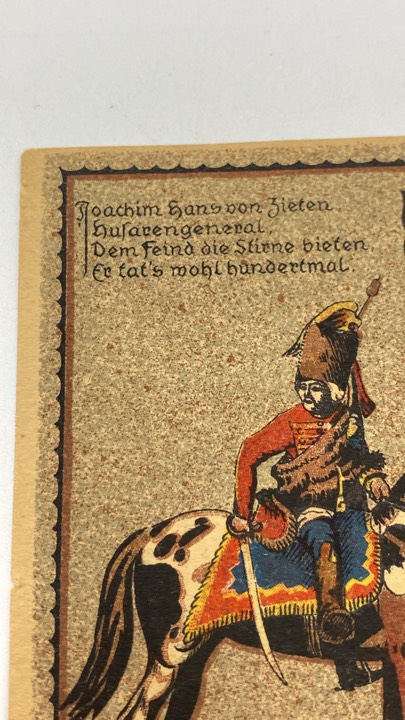 Joachim Hans von Zieten,
Husarengeneral,
Dem Feind die Stirne bieten
Er tat's wohl hundertmal.